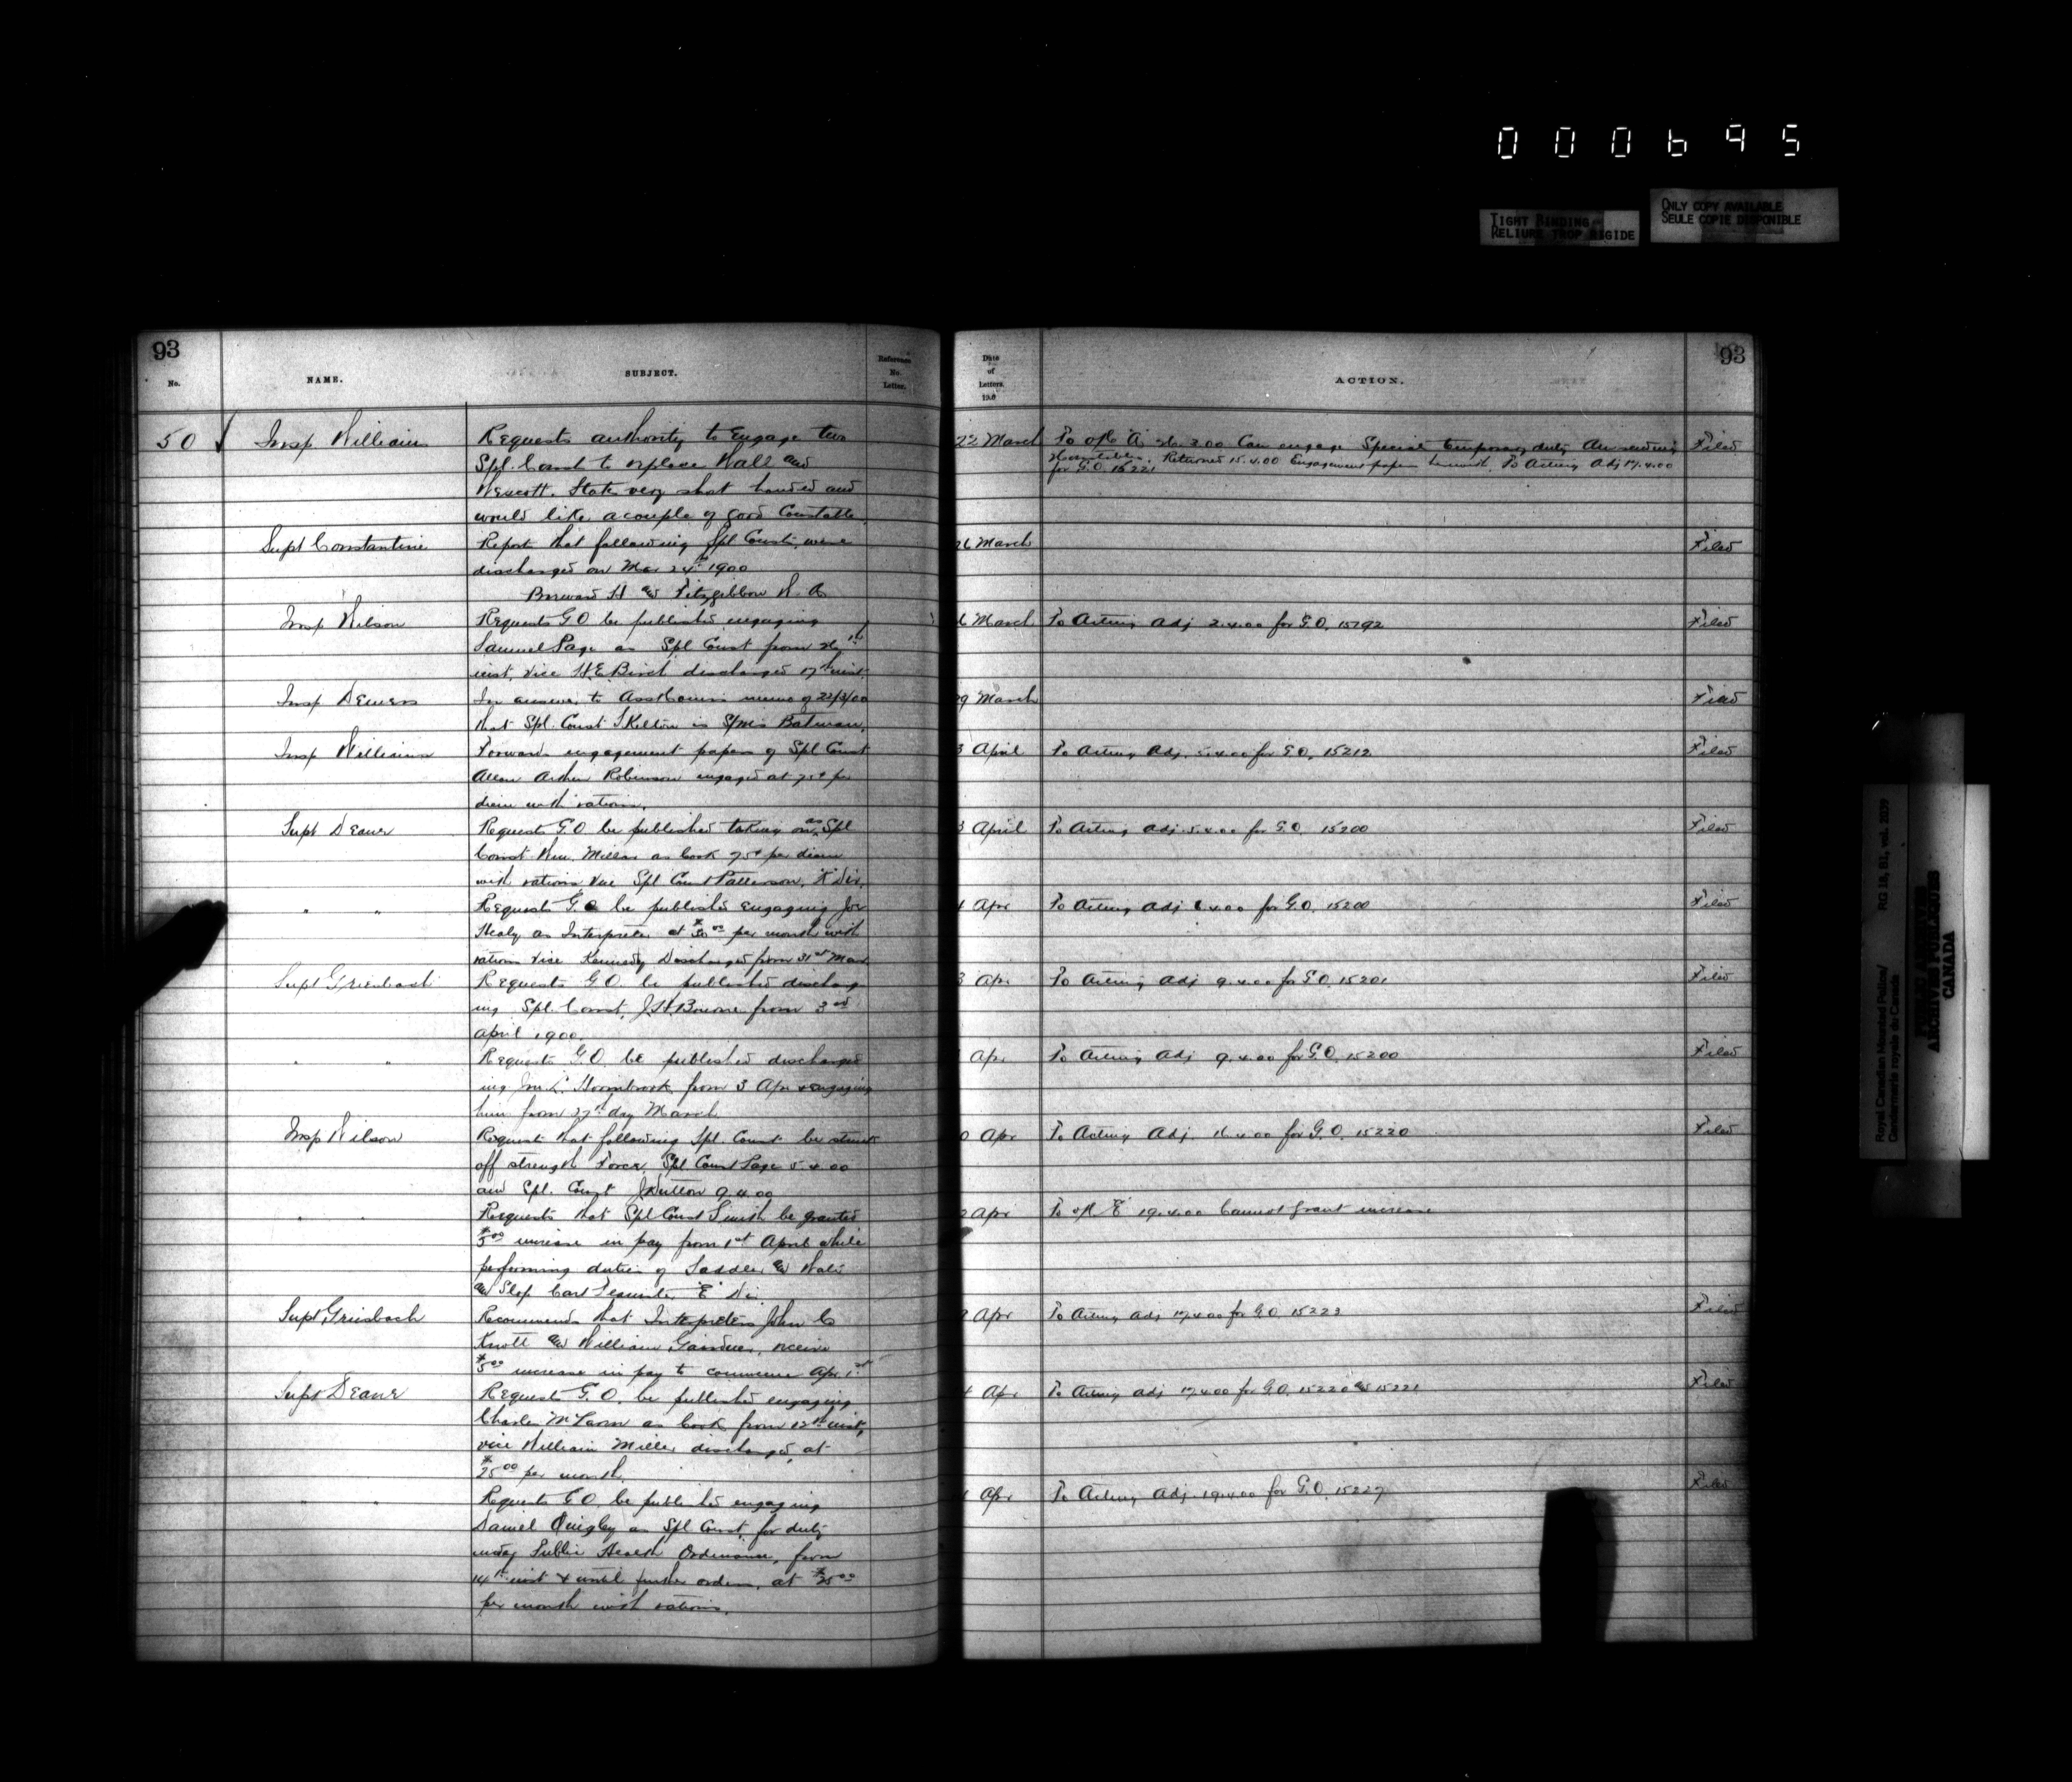 000695
TIGHT BINDING
RELIURE TROP RIGIDE
ONLY COPY AVAILABLE
SEULE COPIE DISPONIBLE
93
No.
NAME.
SUBJECT.
Reference
No.
Letter.
Date
of
Letters.
ACTION.
93
50 Insp Williams
Requests authority to Engage two
Spl. Const to replace Hall and
Wescott. State very short handed and
would like a couple of good Constable
22 March
Can engage Special temporary duty Am sending
Returned 15.4.00 Engagement papers To Acting Adj 17.4.00
for G.O. 15221
Filed
Supt Constantine
Report that following Spl Consts were
discharged on Mar 24th 1900
H & Fitzgibbon
26 March
Filed
Insp Wilson
Requests G O be published engaging
Samuel Page as Spl Const from 26th
inst, vice H.E. Birch discharged 17th inst.
6 March To Acting Adj 2.4.00 for G.O. 15292
Filed
Insp Demers
In answer to Asst Comrs memo of 22/3/00
that Spl. Const Skelton is S/Mis Batman
29 March
Filed
Insp Williams
Forwards engagement papers of Spl Const
Allan Arthur Robinson engaged at 75¢ per
diem with rations.
3 April To Acting Adj. 5.4.00 for G.O. 15212
Filed
Supt Deane
Requests G O be published taking on as Spl
Const Wm. Millar as Cook 75¢ per diem
with rations vice Spl Const Patterson, "K" Div.
3 April To Acting Adj. 5.4.00 for G.O. 15200
Filed
" "
Requests G.O. be published engaging Joe
Healy as Interpreter at $30.00 per month with
rations vice Kennedy Discharged from 31st Mar
4 Apr To Acting Adj 6.4.00 for G.O. 15200
Filed
Supt Griesbach
Requests G.O. be published discharg
ing Spl. Const. J.H. from 3rd
April 1900
3 Apr To Acting Adj 9.4.00 for G.O. 15201
Filed
" "
Requests G.O. be published discharg
ing Hornbrook from 3 Apr & engaging
him from 27th day March
Apr To Acting Adj 9.4.00 for G.O. 15200
Filed
Insp Wilson
Request that following Spl. Const be struck
off strength Force. Spl Const Page 5.4.00
and Spl. Const J Dutton 9.4.00
0 Apr To Acting Adj 16.4.00 for G.O. 15220
Filed
" "
Requests that Spl Const Smith be granted
$5.00 increase in pay from 1st April while
performing duties of Saddler &
& Slop Cart Teamster "E" Div
2 Apr To "E" 19.4.00 Cannot grant increase
Supt. Griesbach
Recommends that Interpreters John
Knott & William Gairdner, receive
$5.00 increase in pay to commence Apr 1st
Apr To Acting Adj 17.4.00 for G.O. 15223
Filed
Supt Deane
Request G.O. be published engaging
Charles as Cook from 12th inst,
vice William Miller discharged, at
$25.00 per month.
4 Apr To Acting Adj 17.4.00 for G.O. 15220 & 15221
Filed
" "
Requests G.O. be published engaging
Daniel Quigley as Spl Const. for duty
under Public Health Ordinance, from
14th inst & until further orders, at $25.00
per month with rations.
Apr To Acting Adj. 19.4.00 for G.O. 15227
Filed
Royal Canadian Mounted Police/
Gendarmerie royale du Canada
RG 18, B1, vol.
PUBLIC ARCHIVES
ARCHIVES PUBLIQUES
CANADA